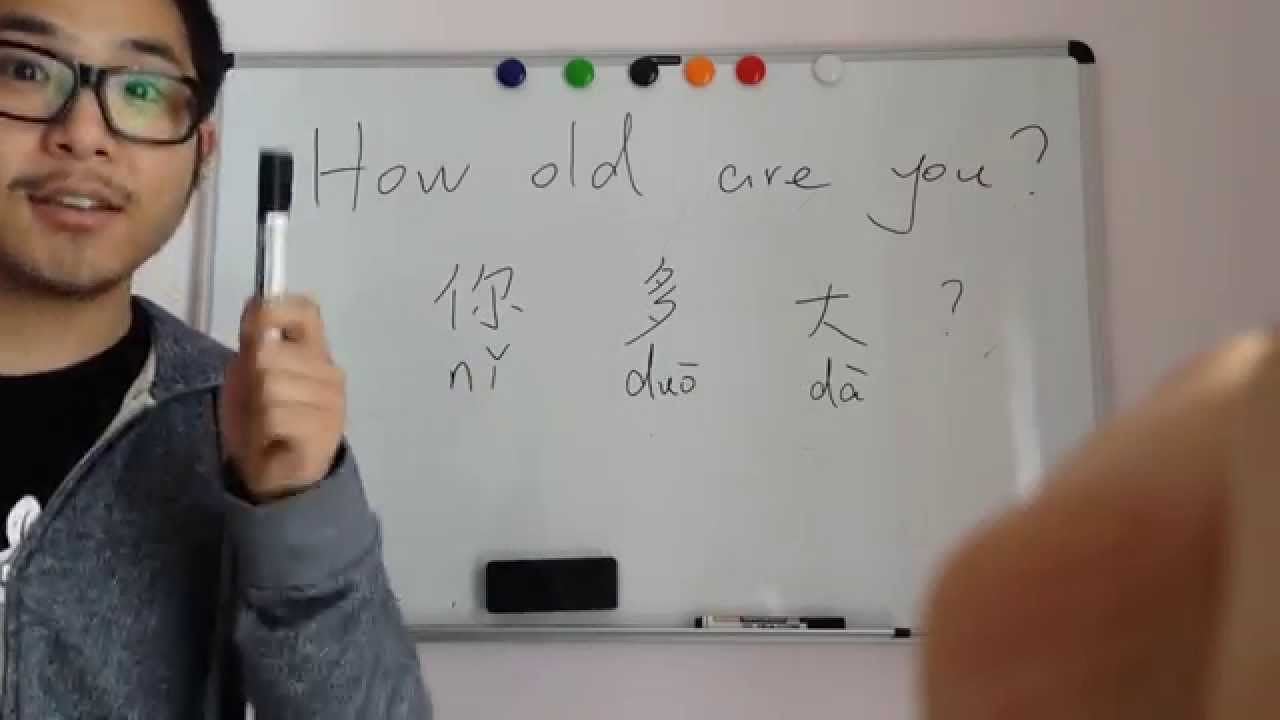 How old are you?
你 多 大 ?
nǐ duō dà